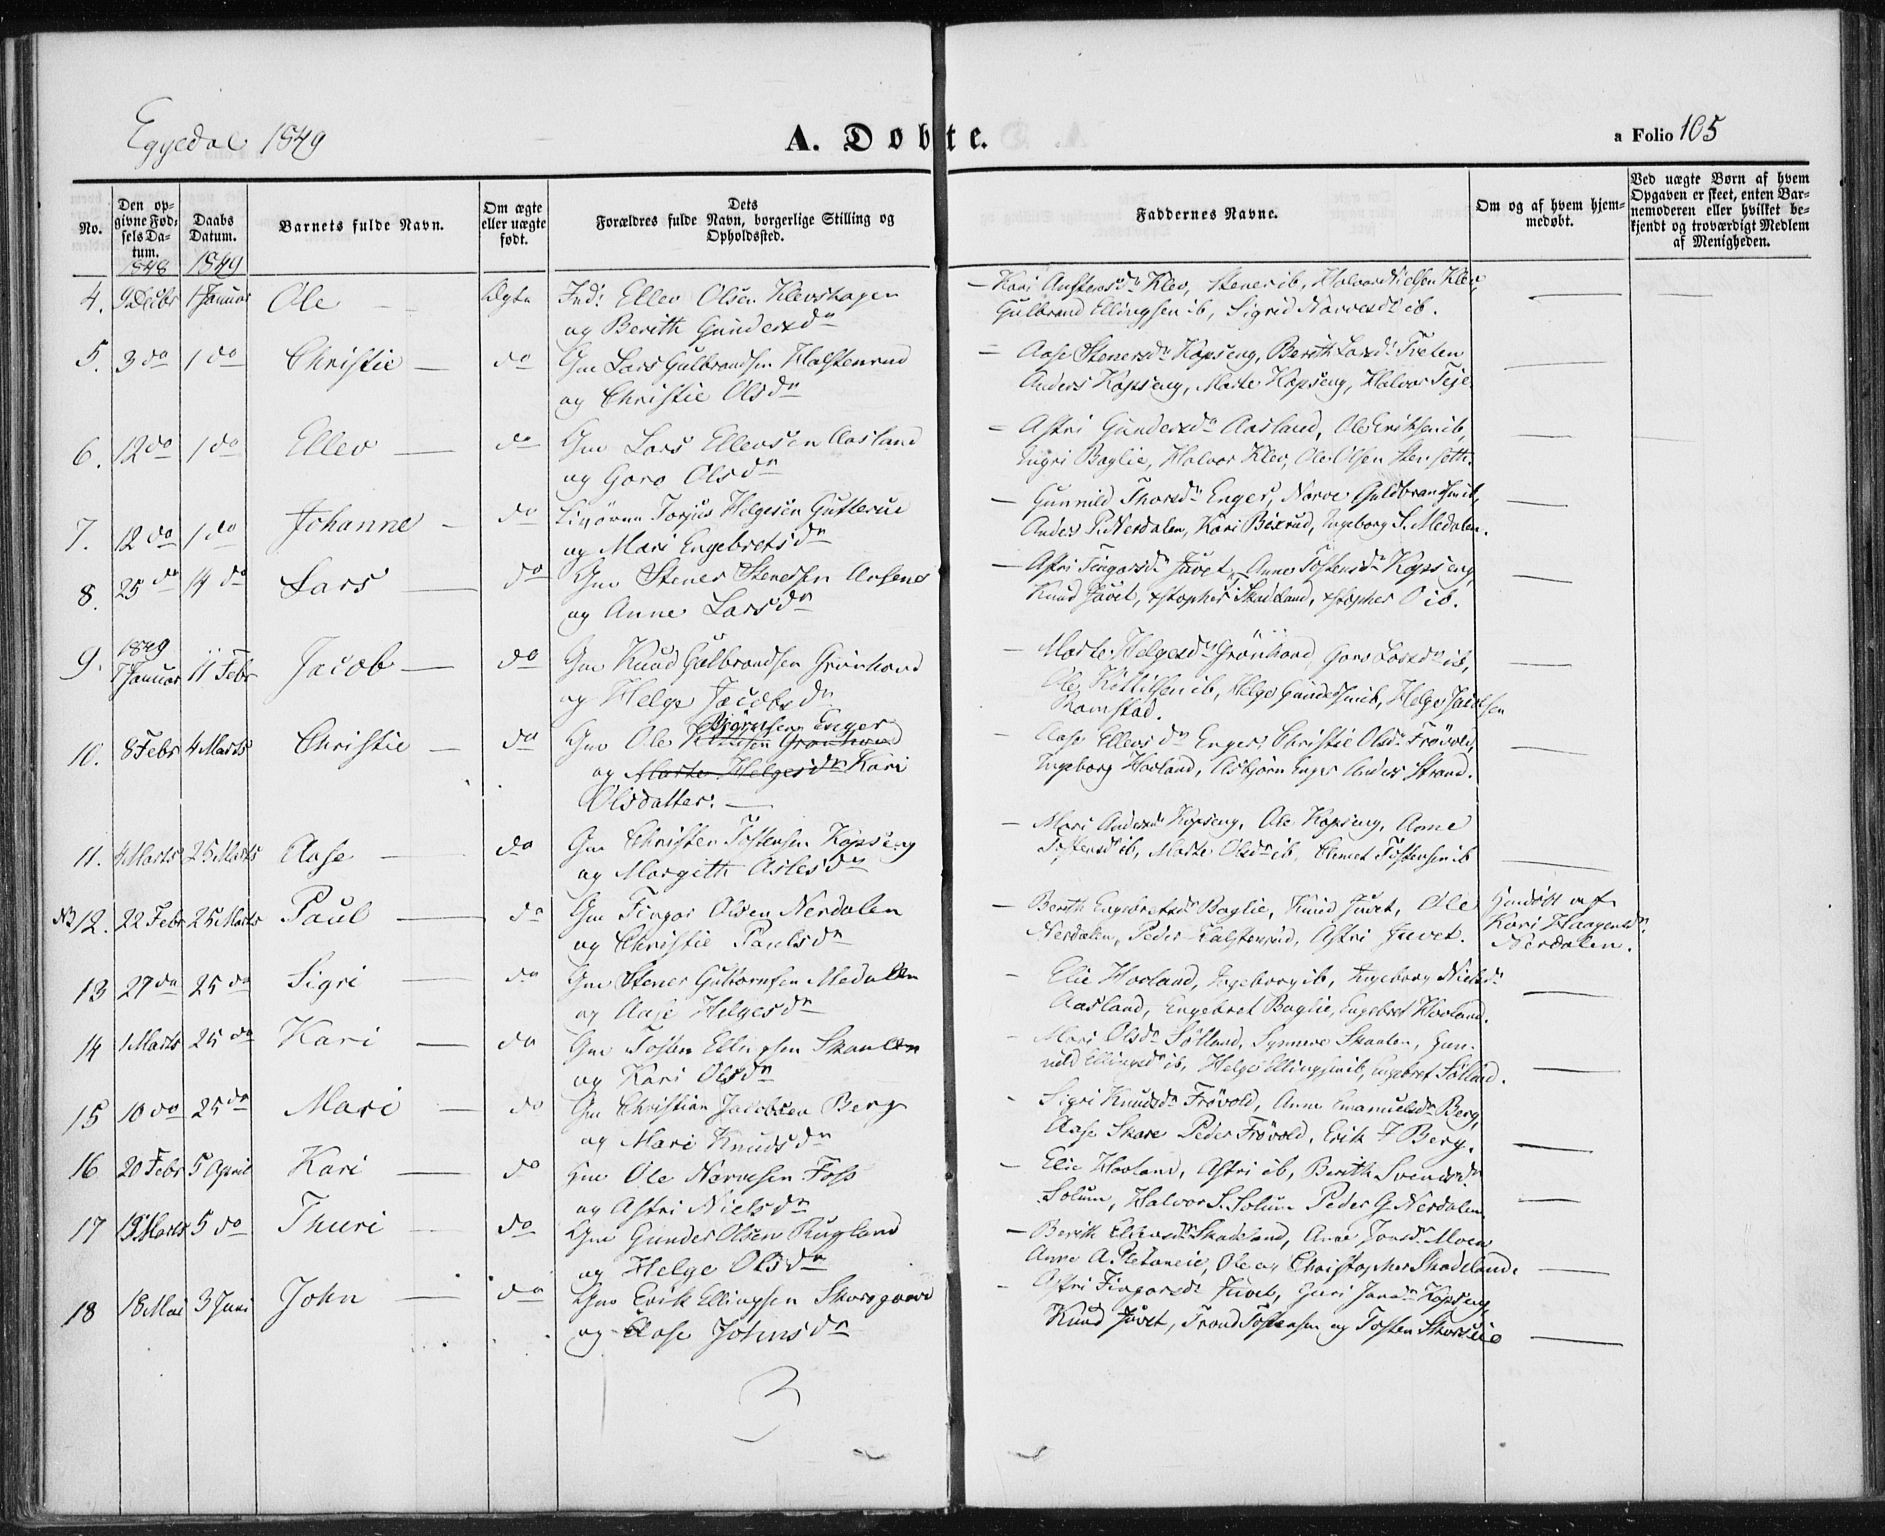 Eggedal 1849
A. Døbte.
a Folio 105
No.
Den opgivne Fødsels Datum.
Daabs Datum.
Barnets fulde Navn.
Om ægte eller uægte født.
Dets Forældres fulde Navn, borgerlige Stilling og Opholdssted.
Faddernes Navne.
Om og af hvem hjemmedøbt.
Ved uægte Børn af hvem Opgaven er skeet, enten Barnemoderen eller hvilket bekjendt og troværdigt Medlem af Menigheden.
1848 1849
4. 1 Januar Ole Ægte Ind: Ellev Olsen Klevshagen
og Berith Gundersdr
Kari Klev, Stener ib, Halvor Nielsen Klev,
Gulbrand Ellingsen ib, Sigrid ib.
5. 3 do 1 do Christie do Gm Lars Gulbrandsen Halstenrud
og Christie Olsdr
Aase Stenersdr Kopseng, Berith Larsdr
Anders Kopseng, Marte Kopseng, Halvor Teje
6. 12 do 1 do Ellev do Gm Lars Ellevsen Aasland
og Goro Olsdr
Astri Gundersdr Aasland, Ole Eriksen ib,
Ingri Baglie, Halvor Klev, Ole Olsen
7. 12 do 1 do Johanne do Torjus Helgesen Gutterud
og Mari Engebretsdr
Gunnild Thorsdr Enger, Narve Guldbrandsen ib,
Anders P. Nerdalen, Kari Ingeborg S. Medalen.
8. 25 do 14 do Lars do Gm Stener Stenersen Aasenes
og Anne Larsdr
Astri Fingarsdr Juvet, Anne Tostensdr Kopseng,
Knud Juvet, Skadeland, O ib.
9. 1849
7 Januar 11 Febr Jacob do Gm Knud Gulbrandsen Grønhovd
og Helge Jacobsdr
Marte Helgesdr Grønhovd, Goro Larsdr ib,
Ole Kittilsen ib, Helge Gundersen ib, Helge Jacobsen
Ramstad.
10. 8 Febr 4 Marts Christie do Gm Ole Bjørnsen Enger
og Marte Helgesdr Kari
Olsdatter.
Aase Ellevsdr Enger, Christie Olsdr Frøvold,
Ingeborg Hovland, Asbjørn Enger Anders Strand.
11. 4 Marts 25 Marts Aase do Gm Christen Tostensen Kopseng
og Margith Aslesdr
Mari Andersdr Kopseng, Ole Kopseng, Anne
Tostensdr ib, Marte Olsdr ib, Clemet Tostensen ib
NB 12. 22 Febr 25 Marts Paul do Gm Fingar Olsen Nerdalen
og Christie Paulsdr
Berith Engebretsdr Baglie, Knud Juvet, Ole
Nerdalen, Peder Halstenrud, Astri Juvet.
Hjemdøbt af
Kari Haagensdr
Nerdalen.
13 27 do 25 do Sigri do Gm Stener Guttormsen Medalen
og Aase Helgesdr
Elie Hovland, Ingeborg ib, Ingeborg Nielsdr
Aasland, Engebret Baglie, Engebret Hovland.
14 1 Marts 25 do Kari do Gm Tosten Ellingsen Skaalen
og Kari Olsdr
Mari Olsdr Sølland, Synneve Skaalen, Gun-
nild Ellingsdr ib, Helge Ellingsen ib, Engebret Sølland.
15 10 do 25 do Mari do Gm Christian Jacobsen Berg
og Mari Knudsdr
Sigri Knudsdr Frøvold, Anne Emanuelsdr Berg,
Aase Skare Peder Frøvold, Erik F Berg.
16 20 Febr 5 April Kari do Gm Ole Narvesen Foss
og Astri Nielsdr
Elie Hovland, Astri ib, Berith Svendsdr
Solum, Halvor S. Solum Peder G. Nerdalen
17 13 Marts 5 do Thuri do Gm Gunder Olsen Rugland
og Helge Olsdr
Berith Ellevsdr Skadeland, Anne Jonsdr Moen
Anne A. Ole og Christopher Skadeland.
18 18 Mai 3 Juni John do Gm Erik Ellingsen Skarsgaard
og Aase Johnsdr
Astri Fingarsdr Juvet, Guri Jonsdr Kopseng,
Knud Juvet, Trond Tostensen og Tosten